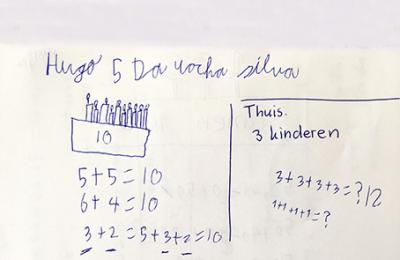 Hugo 5 Da rocha silva
10
5+5=10
6+4=10
3+2=5+3+2=10
Thuis.
3 kinderen
3+3+3+3=?12
1+1+1+1=?